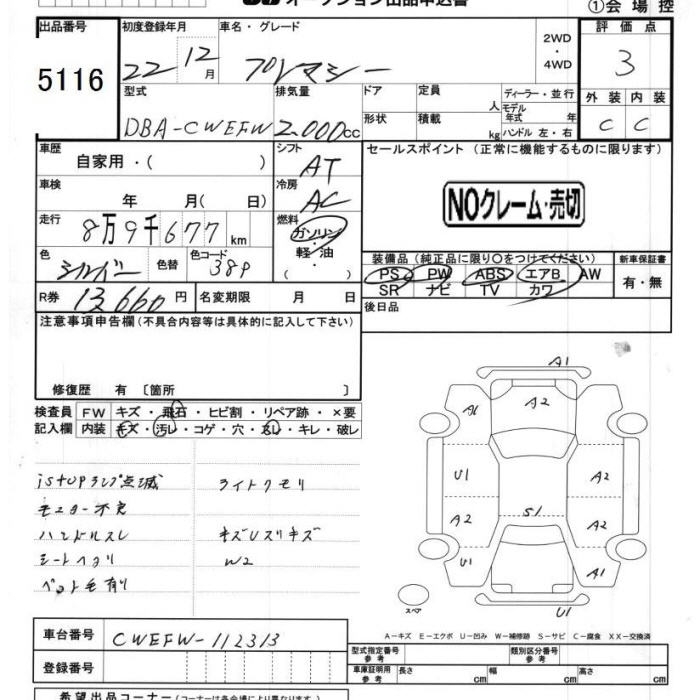 オークション出品申込書
①会場控
出品番号
5116
初度登録年月
22 12月
車名・グレード
プレマシー
2WD
・
4WD
評価点
3
型式
DBA-CWEFW
排気量
2,000cc
ドア
形状
定員
人
積載
kg
ディーラー・並行
モデル
年式 年
ハンドル 左・右
外装 内装
C C
車歴
自家用・( )
シフト
AT
セールスポイント (正常に機能するものに限ります)
車検
年 月( 日)
冷房
AC
NOクレーム・売切
走行
8万9千677km
燃料
ガソリン
・
軽油
・
( )
色
シルバー
色替
色コード
38P
装備品 (純正品に限り○をつけてください)
PS PW ABS エアB AW
SR ナビ TV カワ
新車保証書
有・無
R券
13,660円
名変期限 月 日
後日品
注意事項申告欄 (不具合内容等は具体的に記入して下さい)
修復歴 有 〔箇所 〕
検査員
記入欄
FW キズ・飛石・ヒビ割・リペア跡・×要
内装 キズ・汚レ・コゲ・穴・スレ・キレ・破レ
istopランプ点滅
ライトクモリ
モニター不良
ハンドルスレ
キズUスリキズ
シートヘタリ
W2
ペット毛有り
A1
A2
U1
A2
A2
S1
A2
U1
A1
U1
スペア
A-キズ E-エクボ U-凹み W-補修跡 S-サビ C-腐食 XX-交換済
車台番号
CWEFW-112313
登録番号
型式指定番号
参考
類別区分番号
参考
車庫証明用
参考
長さ cm
幅 cm
高さ cm
希望出品コーナー (コーナーは各会場により異なります。)